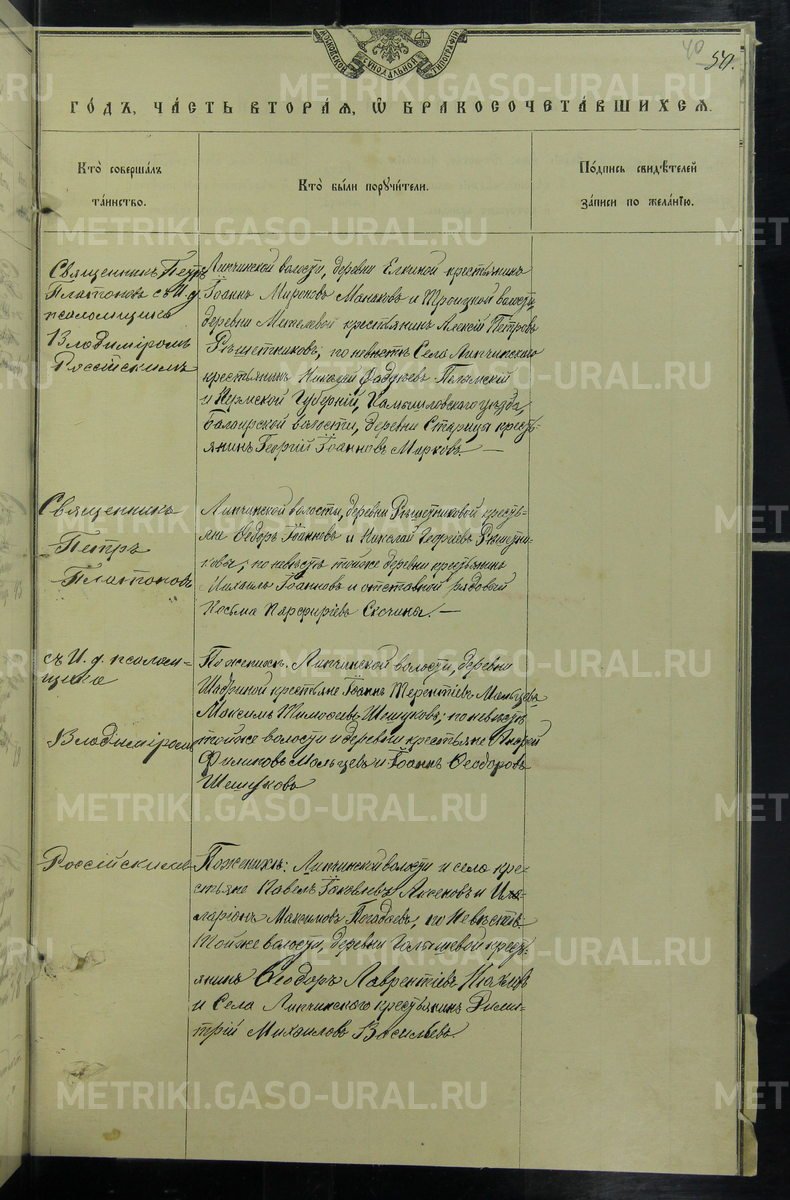 МОСКОВСКОЙ СѴНОДАЛЬНОЙ ТИПОГРАФІИ
40
50.
ГО́ДЪ, ЧА́СТЬ ВТОРА́Я, Ѡ БРАКОСОЧЕТА́ВШИХСЯ.
Кто̀ соверша́лъ
та́инство.
Кто̀ бы́ли поручи́тели.
По́дпись свидѣ́телей
за́писи по жела́нію.
Священникъ Петръ
Платоновъ съ И. д.
псаломщика
Владиміромъ
Россійскимъ
Липчинской волости, деревни Елкиной крестьянинъ
Іоаннъ Мироновъ Манаковъ и Троицкой волости,
деревни крестьянинъ Алексій Петровъ
Рѣшетниковъ; по невѣстѣ Села Липчинскаго
крестьянинъ Николай
и Пермской Губерніи, Камышловскаго уѣзда,
Балаирской волости, деревни Старица кресть-
янинъ Георгій Іоанновъ Марковъ. —
Священникъ
Петръ
Платоновъ
Липчинской волости, деревни Рѣшетниковой кресть-
яне Ѳедоръ Іоанновъ и Николай Георгіевъ Рѣшетни-
ковы; по невѣстѣ тойже деревни крестьянинъ
Михаилъ Іоанновъ и отставной рядовой
Косьма Парфиріевъ —
съ И. д. псалом-
щика
Владиміромъ
По женихѣ: Липчинской волости, деревни
Шадриной крестьяне Іоаннъ Терентіевъ Мальцевъ
Максимъ Тимофеевъ Шешуковъ; по невѣстѣ
тойже волости и деревни крестьяне Андрей
Филиповъ Мальцевъ и Іоаннъ Ѳеодоровъ
Шешуковъ
Россійскимъ
По женихѣ: Липчинской волости и села кре-
стьяне Павелъ Іаковлевъ Аксеновъ и Ила-
ріонъ Максимовъ Погадаевъ; по Невѣстѣ
Тойже волости, деревни Галышевой кресть-
янинъ Ѳеодоръ Лаврентіевъ
и Села Липчинскаго крестьянинъ Дими-
трій Михаиловъ Васильевъ.
METRIKI.GASO-URAL.RU